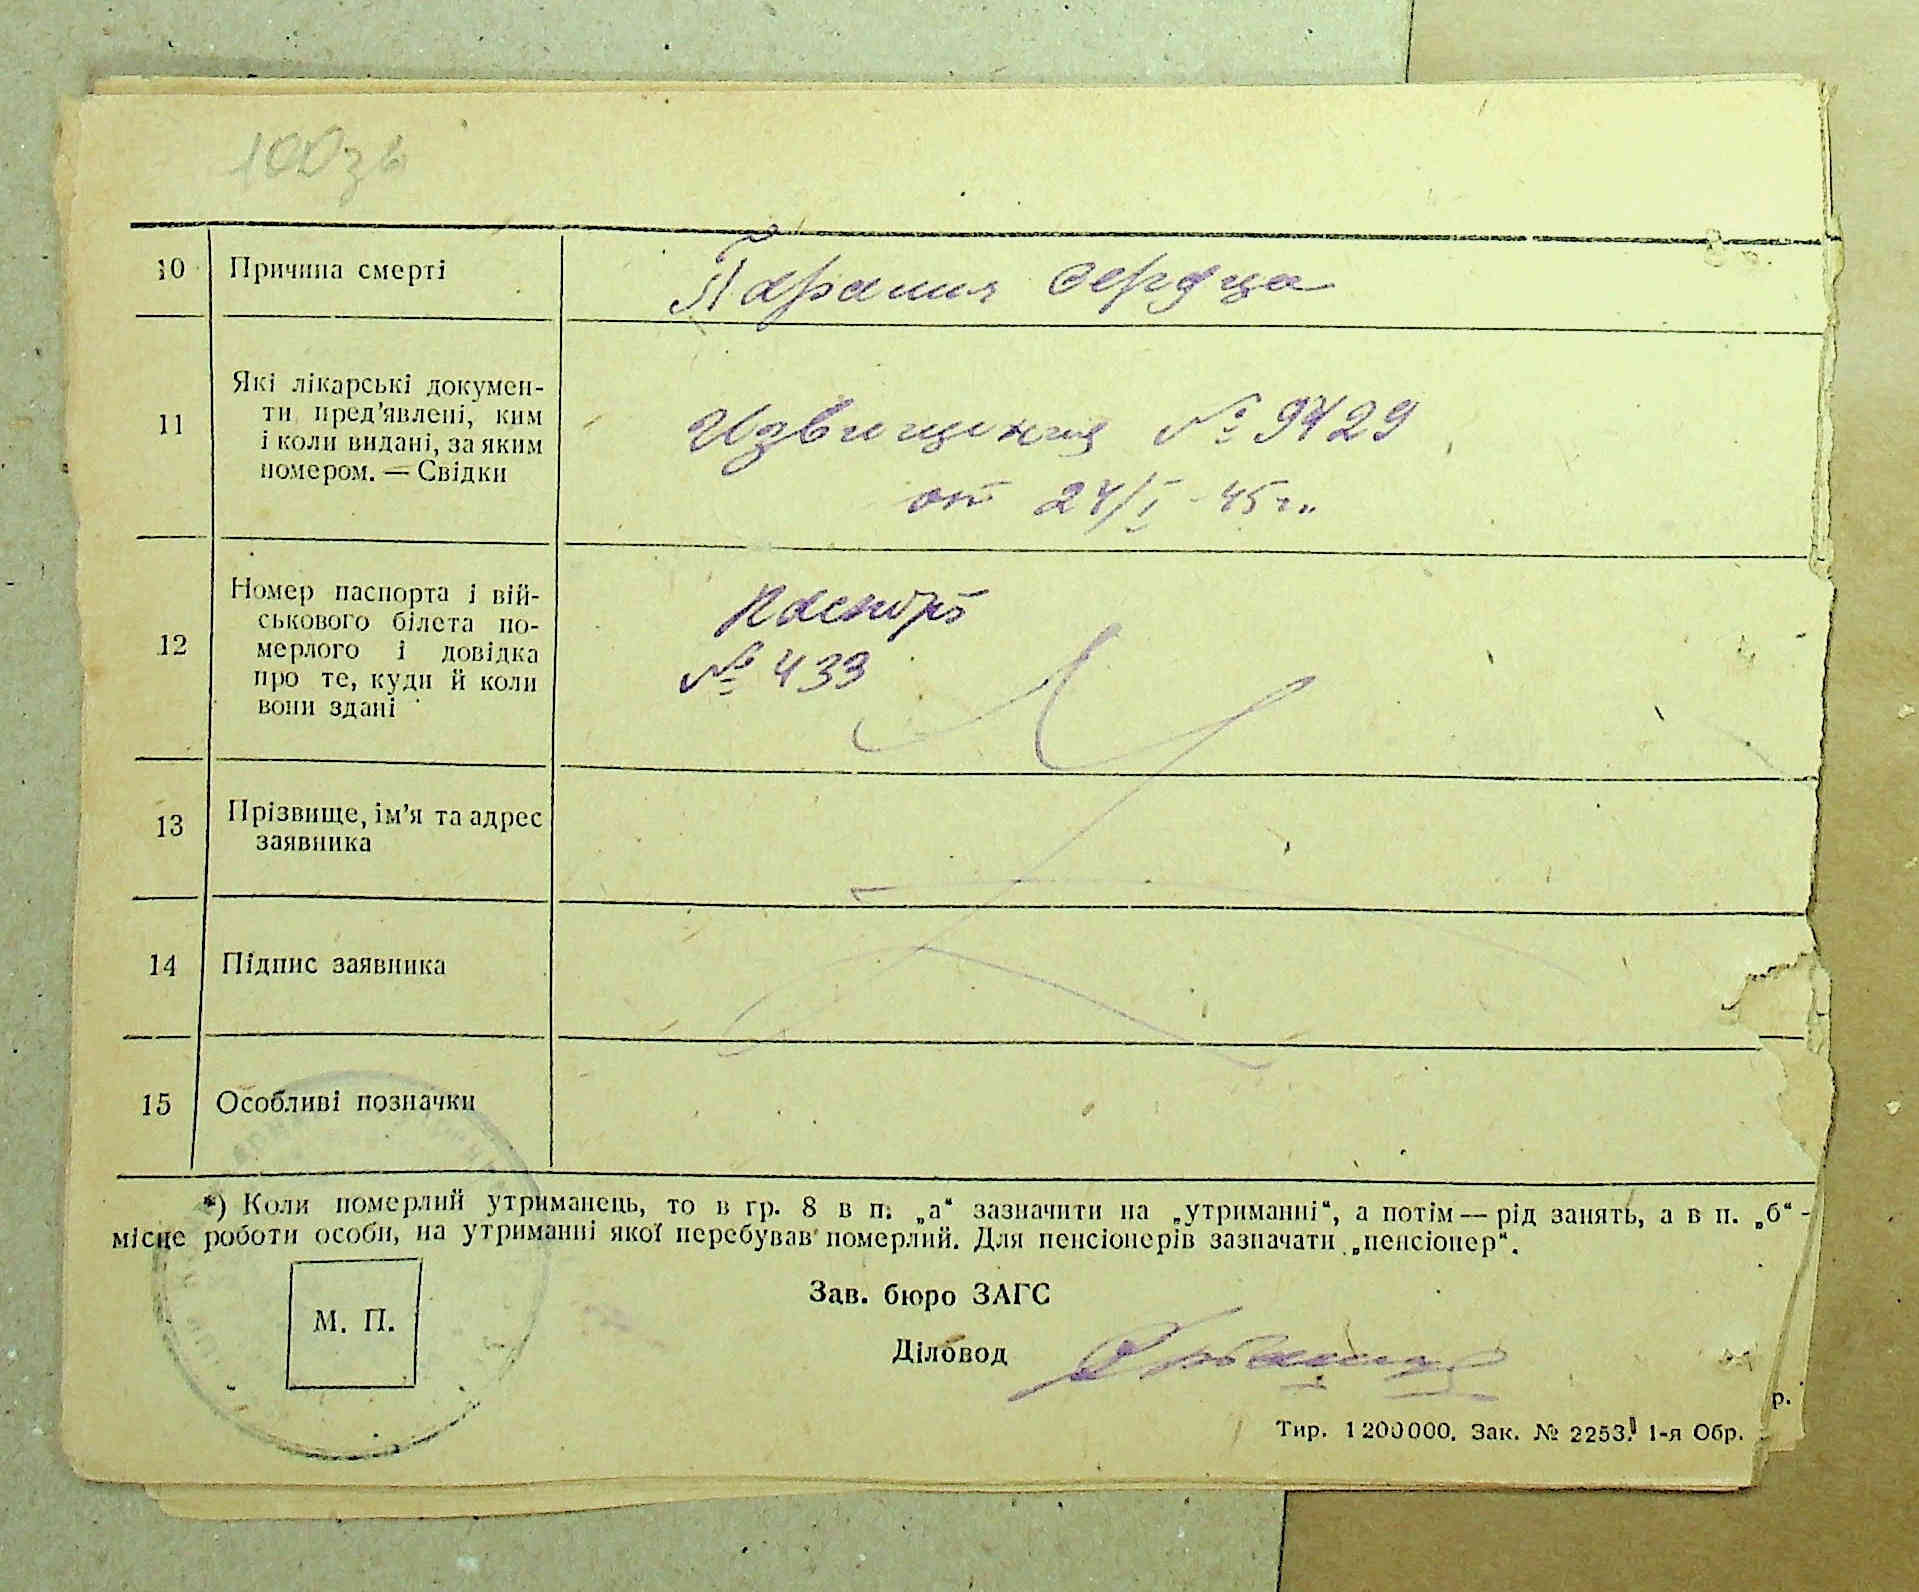 100зв
10 Причина смерті
Паралич сердца
11 Які лікарські докумен-
ти пред'явлені, ким
і коли видані, за яким
номером. — Свідки
Извещения № 9429
от 24/I - 45 г.
12 Номер паспорта і вій-
ськового білета по-
мерлого і довідка
про те, куди й коли
вони здані
Паспорт
№ 433
13 Прізвище, ім'я та адрес
заявника
14 Підпис заявника
15 Особливі позначки
*) Коли померлий утриманець, то в гр. 8 в п. „а“ зазначити на „утриманні“, а потім — рід занять, а в п. „б“ -
місце роботи особи, на утриманні якої перебував померлий. Для пенсіонерів зазначати „пенсіонер“.
М. П.
Зав. бюро ЗАГС
Діловод
р.
Тир. 1200000. Зак. № 2253. 1-я Обр.